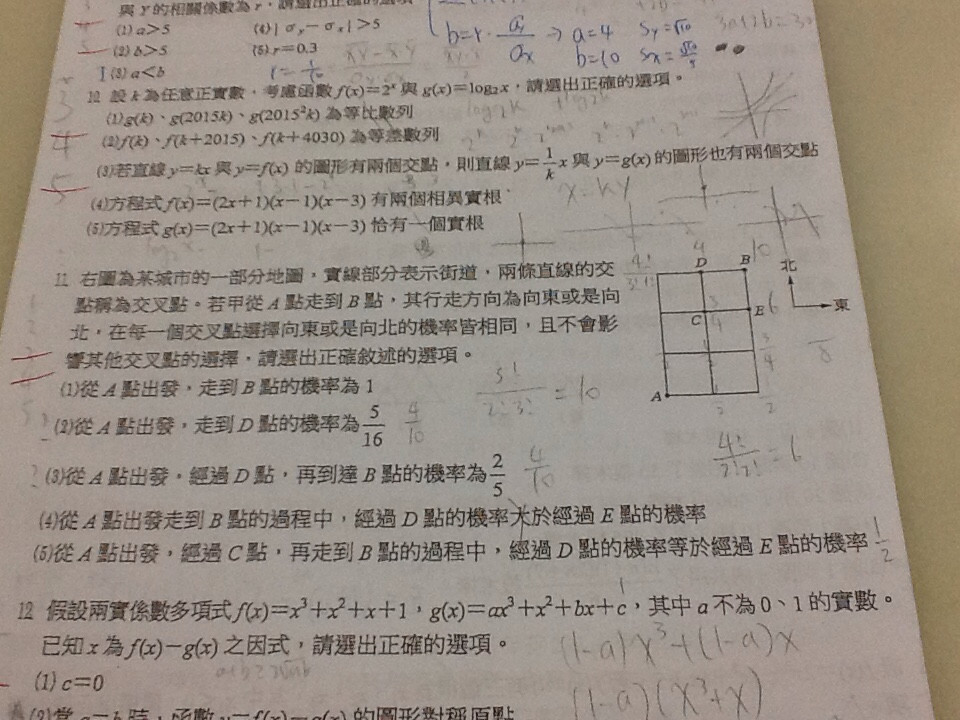 與 Y 的相關係數為 r，請選出正確的選項
(1) a>5 (4) | σy − σx | >5
(2) b>5 (5) r=0.3
(3) a<b
b=r·σy/σx ⇒ a=4 Sy=√10
b=10
10 設 k 為任意正實數，考慮函數 f(x)=2ˣ 與 g(x)=log₂x，請選出正確的選項。
(1)g(k)、g(2015k)、g(2015²k) 為等比數列
(2)f(k)、f(k+2015)、f(k+4030) 為等差數列
(3)若直線 y=kx 與 y=f(x) 的圖形有兩個交點，則直線 y=1/k x 與 y=g(x) 的圖形也有兩個交點
x=ky
(4)方程式 f(x)=(2x+1)(x−1)(x−3) 有兩個相異實根
(5)方程式 g(x)=(2x+1)(x−1)(x−3) 恰有一個實根
11 右圖為某城市的一部分地圖，實線部分表示街道，兩條直線的交
點稱為交叉點。若甲從 A 點走到 B 點，其行走方向為向東或是向
北，在每一個交叉點選擇向東或是向北的機率皆相同，且不會影
響其他交叉點的選擇，請選出正確敘述的選項。
4!/3!1! 4 10
D B 北
C E 6 東
A
(1)從 A 點出發，走到 B 點的機率為 1
5!/2!3! = 10
(2)從 A 點出發，走到 D 點的機率為 5/16 4/10
4!/2!2! = 6
(3)從 A 點出發，經過 D 點，再到達 B 點的機率為 2/5 4/10
(4)從 A 點出發走到 B 點的過程中，經過 D 點的機率大於經過 E 點的機率
(5)從 A 點出發，經過 C 點，再走到 B 點的過程中，經過 D 點的機率等於經過 E 點的機率 1/2
12 假設兩實係數多項式 f(x)=x³+x²+x+1，g(x)=ax³+x²+bx+c，其中 a 不為 0、1 的實數。
已知 x 為 f(x)−g(x) 之因式，請選出正確的選項。
(1−a)x³+(1−a)x
(1) c=0
(1−a)(x³+x)
(2)當 a=b 時，函數 y=f(x)−g(x) 的圖形對稱原點